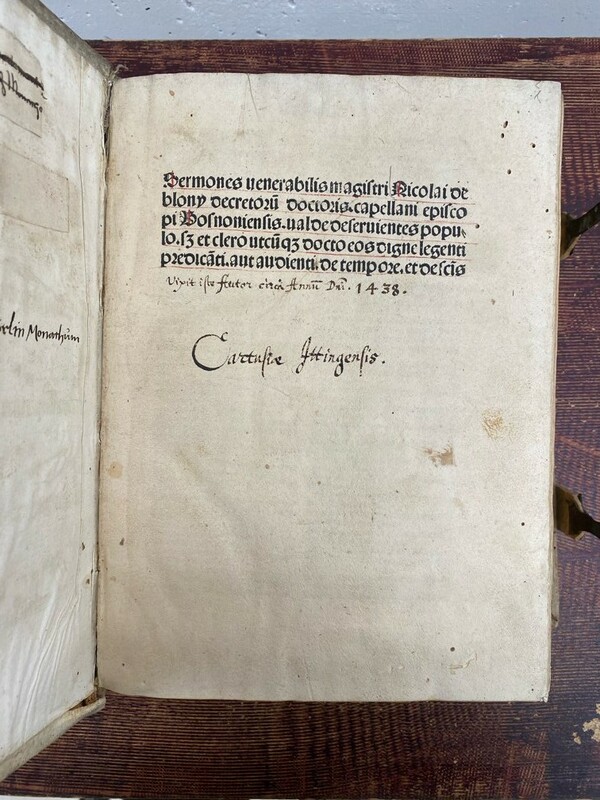 Sermones venerabilis magistri Nicolai de
blony decretorū doctoris. capellani episco
pi Posnoniensis. ualde deseruientes popu
lo. sz et clero utcūqz docto eos digne legenti
predicāti. aut audienti. de tempore. et de scīs
Vixit iste Autor circa Annū Dnī. 1438.
Monachum
Cartusiæ Ittingensis.